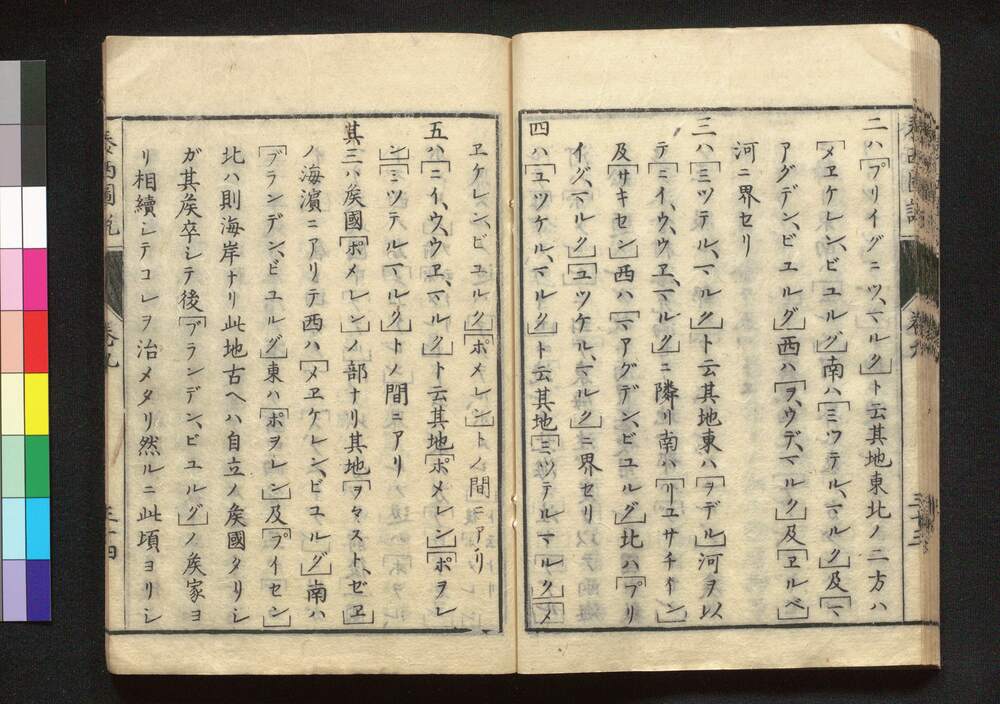 二ハ[プリイグニツ、マルク]ト云其地東北ノ二方ハ
[メヱケレン、ビユルグ]南ハ[ミツテル、マルク]及[マ
アグデン、ビユルグ]西ハ[ヲ、ウデ、マルク]及[ヱルベ]
河ニ界セリ
三ハ[ミツテル、マルク]ト云其地東ハ[ヲデル]河ヲ以
テ[ニイ、ウ、ウヱ、マルク]ニ隣リ南ハ[リユサチイン]
及[サキセン]西ハ[マアグデン、ビユルグ]北ハ[プリ
イグ、マルク][ユツケル、マルク]ニ界セリ
四ハ[ユツケル、マルク]ト云其地[ミツテルマルク][メ
ヱケレン、ビユルク][ポメレン]トノ間ニアリ
五ハ[ニイ、ウ、ウヱ、マルク]ト云其地[ポメレン][ポヲレ
ン][ミツテルマルク]トノ間ニアリ
其三ハ矦國[ポメレン]ノ部ナリ其地[ヲヽスト、ゼヱ]
ノ海濵ニアリテ西ハ[メヱケレン、ビユルグ]南ハ
[ブランデン、ビユルグ]東ハ[ポヲレン]及[プイセン]
北ハ則海岸ナリ此地古ヘハ自立ノ矦國タリシ
ガ其矦卒シテ後[ブランデン、ビユルグ]ノ矦家ヨ
リ相續シテコレヲ治メタリ然ルニ此頃ヨリシ
泰西圖說
卷九
三十四